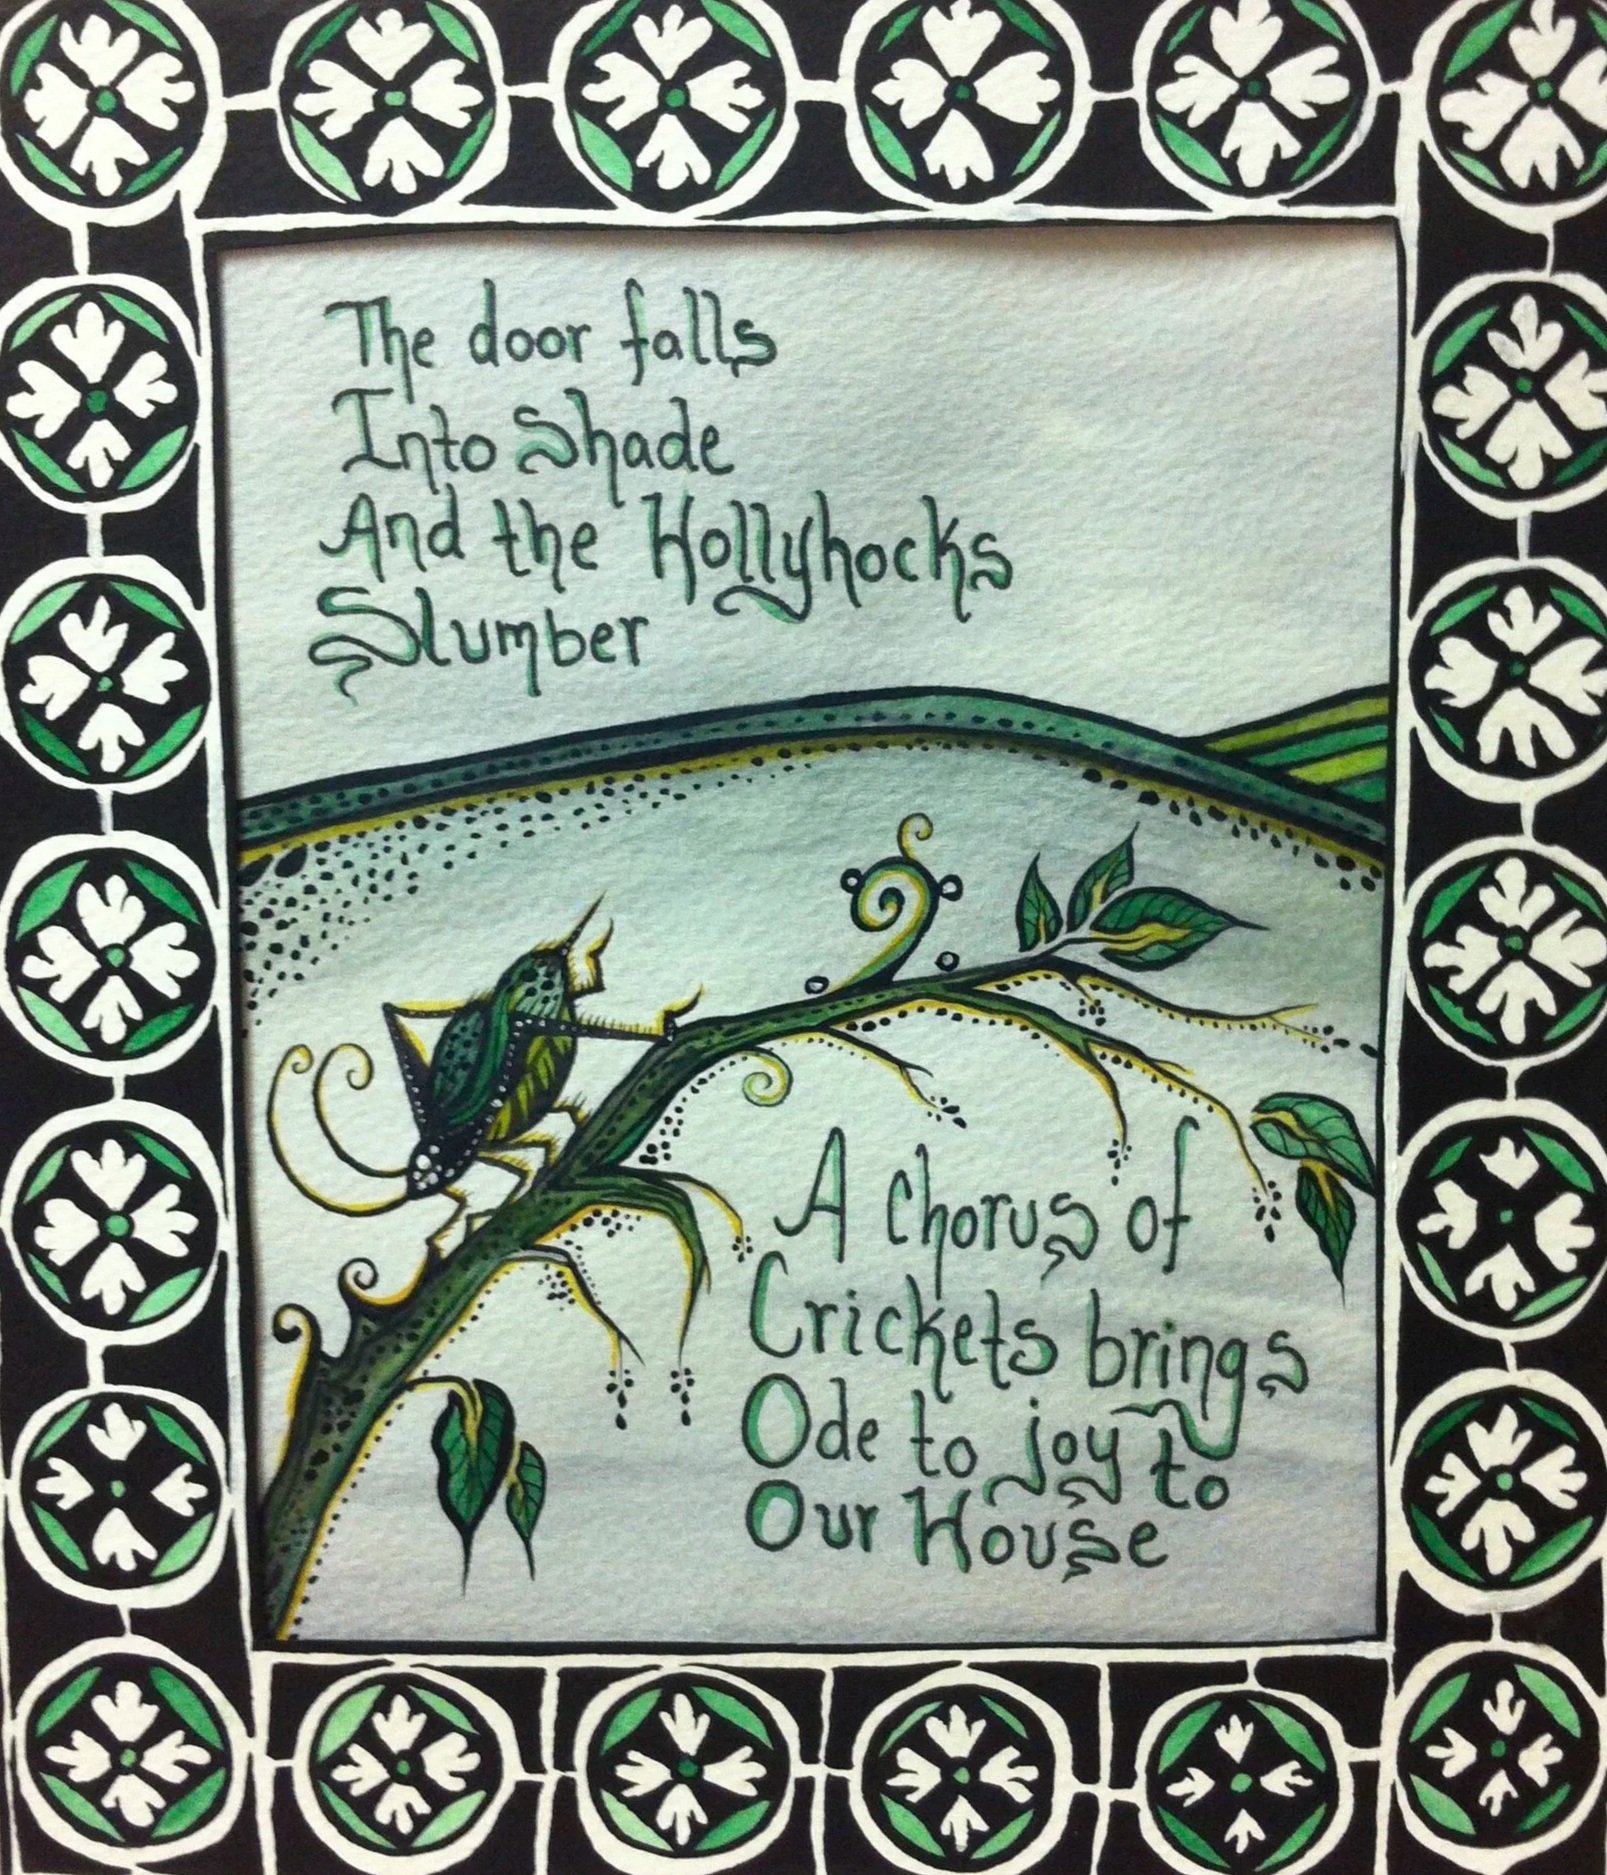 The door falls
Into Shade
And the Hollyhocks
Slumber
A chorus of
Crickets brings
Ode to joy to
Our House